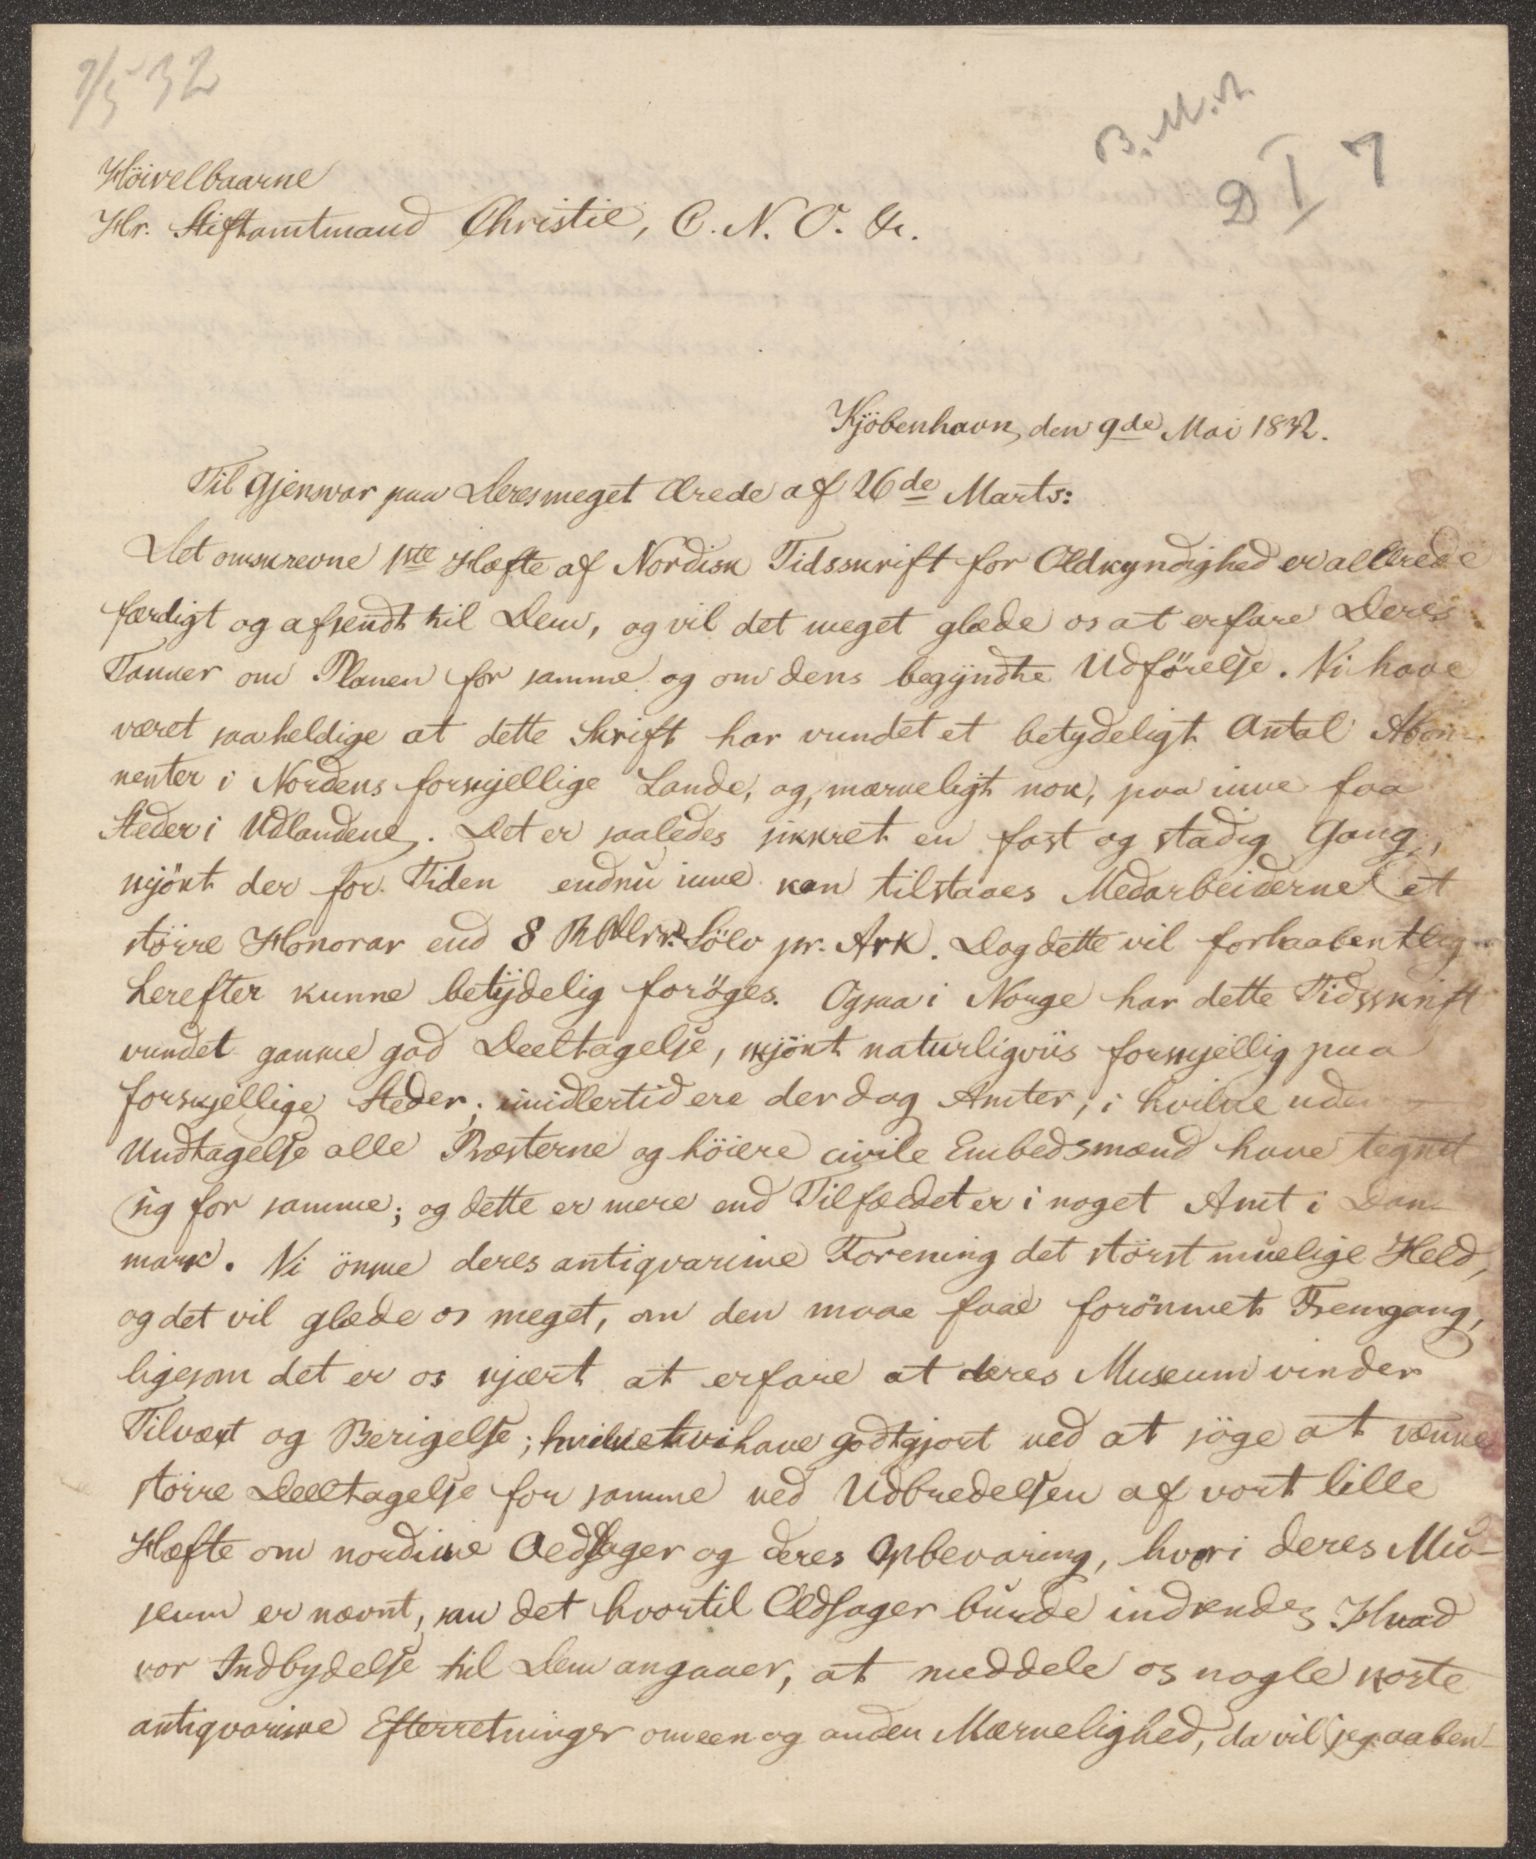 9/5 32
B. M. A.
D I 7
Höivelbaarne
Hr. Stiftamtmand Christie, C. N. O. &c.
Kjöbenhavn, den 9de Mai 1832.
Til Gjensvar paa Deres meget Ærede af 26de Marts:
Det omskrevne 1ste Hæfte af Nordisk Tidsskrift for Oldkyndighed er allerede
færdigt og afsendt til Dem, og vil det meget glæde os at erfare Deres
Tanker om Planen for samme og om dens begyndte Udförelse. Vi have
været saa heldige at dette Skrift har vundet et betydeligt Antal Abon-
nenter i Nordens forskjellige Lande, og, mærkeligt nok, paa ikke faa
Steder i Udlandene. Det er saaledes sikkret en fast og stadig Gang,
skjönt der for Tiden endnu ikke kan tilstaaes Medarbeiderne et
större Honorar end 8 Rbdlr. Sölv pr. Ark. Dog dette vil forhaabentlig
herefter kunne betydelig foröges. Ogsaa i Norge har dette Tidsskrift
vundet ganske god Deeltagelse, skjönt naturligviis forskjellig paa
forskjellige Steder; imidlertid ere der dog Amter, i hvilke uden
Undtagelse alle Præsterne og höiere civile Embedsmænd have tegnet
sig for samme; og dette er mere end Tilfældet er i noget Amt i Dan-
mark. Vi önske deres antiqvariske Forening det störst muelige Held,
og det vil glæde os meget, om den maae faae forönsket Fremgang,
ligesom det er os kjært at erfare at deres Museum vinder
Tilvæxt og Berigelse; hvilket vi have godtgjort ved at söge at vække
större Deeltagelse for samme ved Udbredelsen af vort lille
Hæfte om nordiske Oldsager og deres Opbevaring, hvori deres Mu-
seum er nævnt, som det hvortil Oldsager burde indsendes. Hvad
vor Indbydelse til Dem angaaer, at meddele os nogle korte
antiqvariske Efterretninger om een og anden Mærkelighed, da vil jeg aaben-